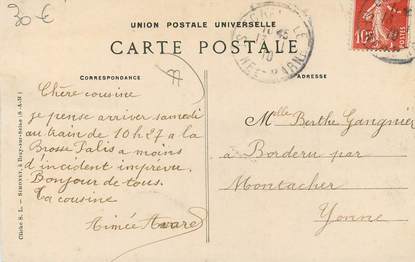 30 €
UNION POSTALE UNIVERSELLE
CARTE POSTALE
CORRESPONDANCE
ADRESSE
Chère cousine
je pense arriver samedi
au train de 10 h 27 a la
Brosse Palis a moins
d'incident imprévu.
Bonjour de tous.
ta cousine
Aimée
Melle Berthe Gangnier
à Borderu par
Montacher
Yonne
Cliché S. L. — SIMONET, à Bray-sur-Seine (S.-&-M.)
10